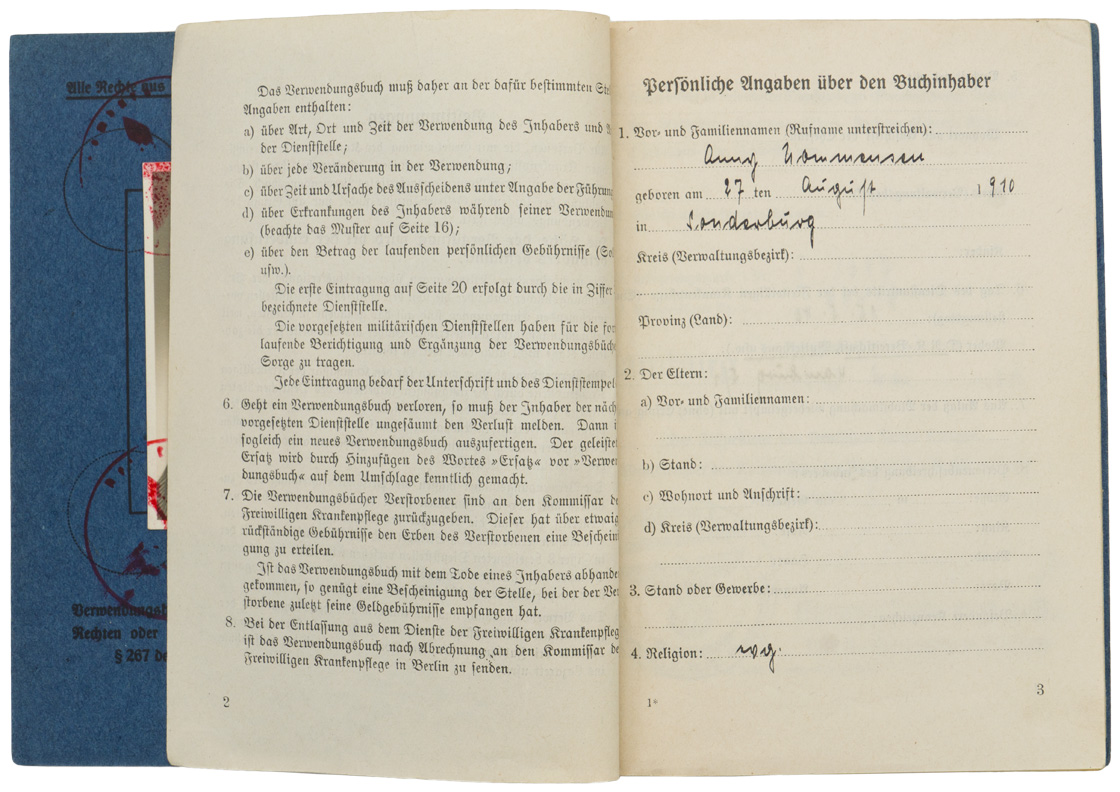 Alle Rechte aus
Verwendungs
Rechten oder
§ 267 de
Das Verwendungsbuch muß daher an der dafür bestimmten
Angaben enthalten:
a) über Art, Ort und Zeit der Verwendung des Inhabers und
der Dienststelle;
b) über jede Veränderung in der Verwendung;
c) über Zeit und Ursache des Ausscheidens unter Angabe der Führun
d) über Erkrankungen des Inhabers während seiner Verwendun
(beachte das Muster auf Seite 16);
e) über den Betrag der laufenden persönlichen Gebührnisse (So
usw.).
Die erste Eintragung auf Seite 20 erfolgt durch die in Ziffer
bezeichnete Dienststelle.
Die vorgesetzten militärischen Dienststellen haben für die for
laufende Berichtigung und Ergänzung der Verwendungsbüch
Sorge zu tragen.
Jede Eintragung bedarf der Unterschrift und des Dienststempel
6. Geht ein Verwendungsbuch verloren, so muß der Inhaber der näch
vorgesetzten Dienststelle ungesäumt den Verlust melden. Dann i
sogleich ein neues Verwendungsbuch auszufertigen. Der geleistet
Ersatz wird durch Hinzufügen des Wortes »Ersatz« vor »Verwen
dungsbuch« auf dem Umschlage kenntlich gemacht.
7. Die Verwendungsbücher Verstorbener sind an den Kommissar de
Freiwilligen Krankenpflege zurückzugeben. Dieser hat über etwaig
rückständige Gebührnisse den Erben des Verstorbenen eine Beschein
gung zu erteilen.
Ist das Verwendungsbuch mit dem Tode eines Inhabers abhande
gekommen, so genügt eine Bescheinigung der Stelle, bei der der Ver
storbene zuletzt seine Geldgebührnisse empfangen hat.
8. Bei der Entlassung aus dem Dienste der Freiwilligen Krankenpfleg
ist das Verwendungsbuch nach Abrechnung an den Kommissar de
Freiwilligen Krankenpflege in Berlin zu senden.
2
Persönliche Angaben über den Buchinhaber
1. Vor- und Familiennamen (Rufname unterstreichen):
Anny Nommensen
geboren am 27 ten August 1910
in Sonderburg
Kreis (Verwaltungsbezirk):
Provinz (Land):
2. Der Eltern:
a) Vor- und Familiennamen:
b) Stand:
c) Wohnort und Anschrift:
d) Kreis (Verwaltungsbezirk):
3. Stand oder Gewerbe:
4. Religion: evg.
1*
3